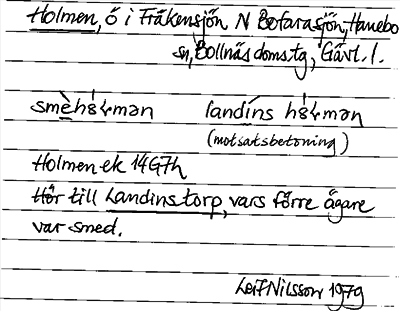 Holmen, ö i Fräkensjön N Bofarasjön, Hanebo
sn, Bollnäs doms.tg, Gävl. l.
smèhɞ́ɽmən landíns hɞ́ɽmən
(motsatsbetoning)
Holmen ek 14G7h
Hör till Landinstorp, vars förre ägare
var smed.
Leif Nilsson 1979